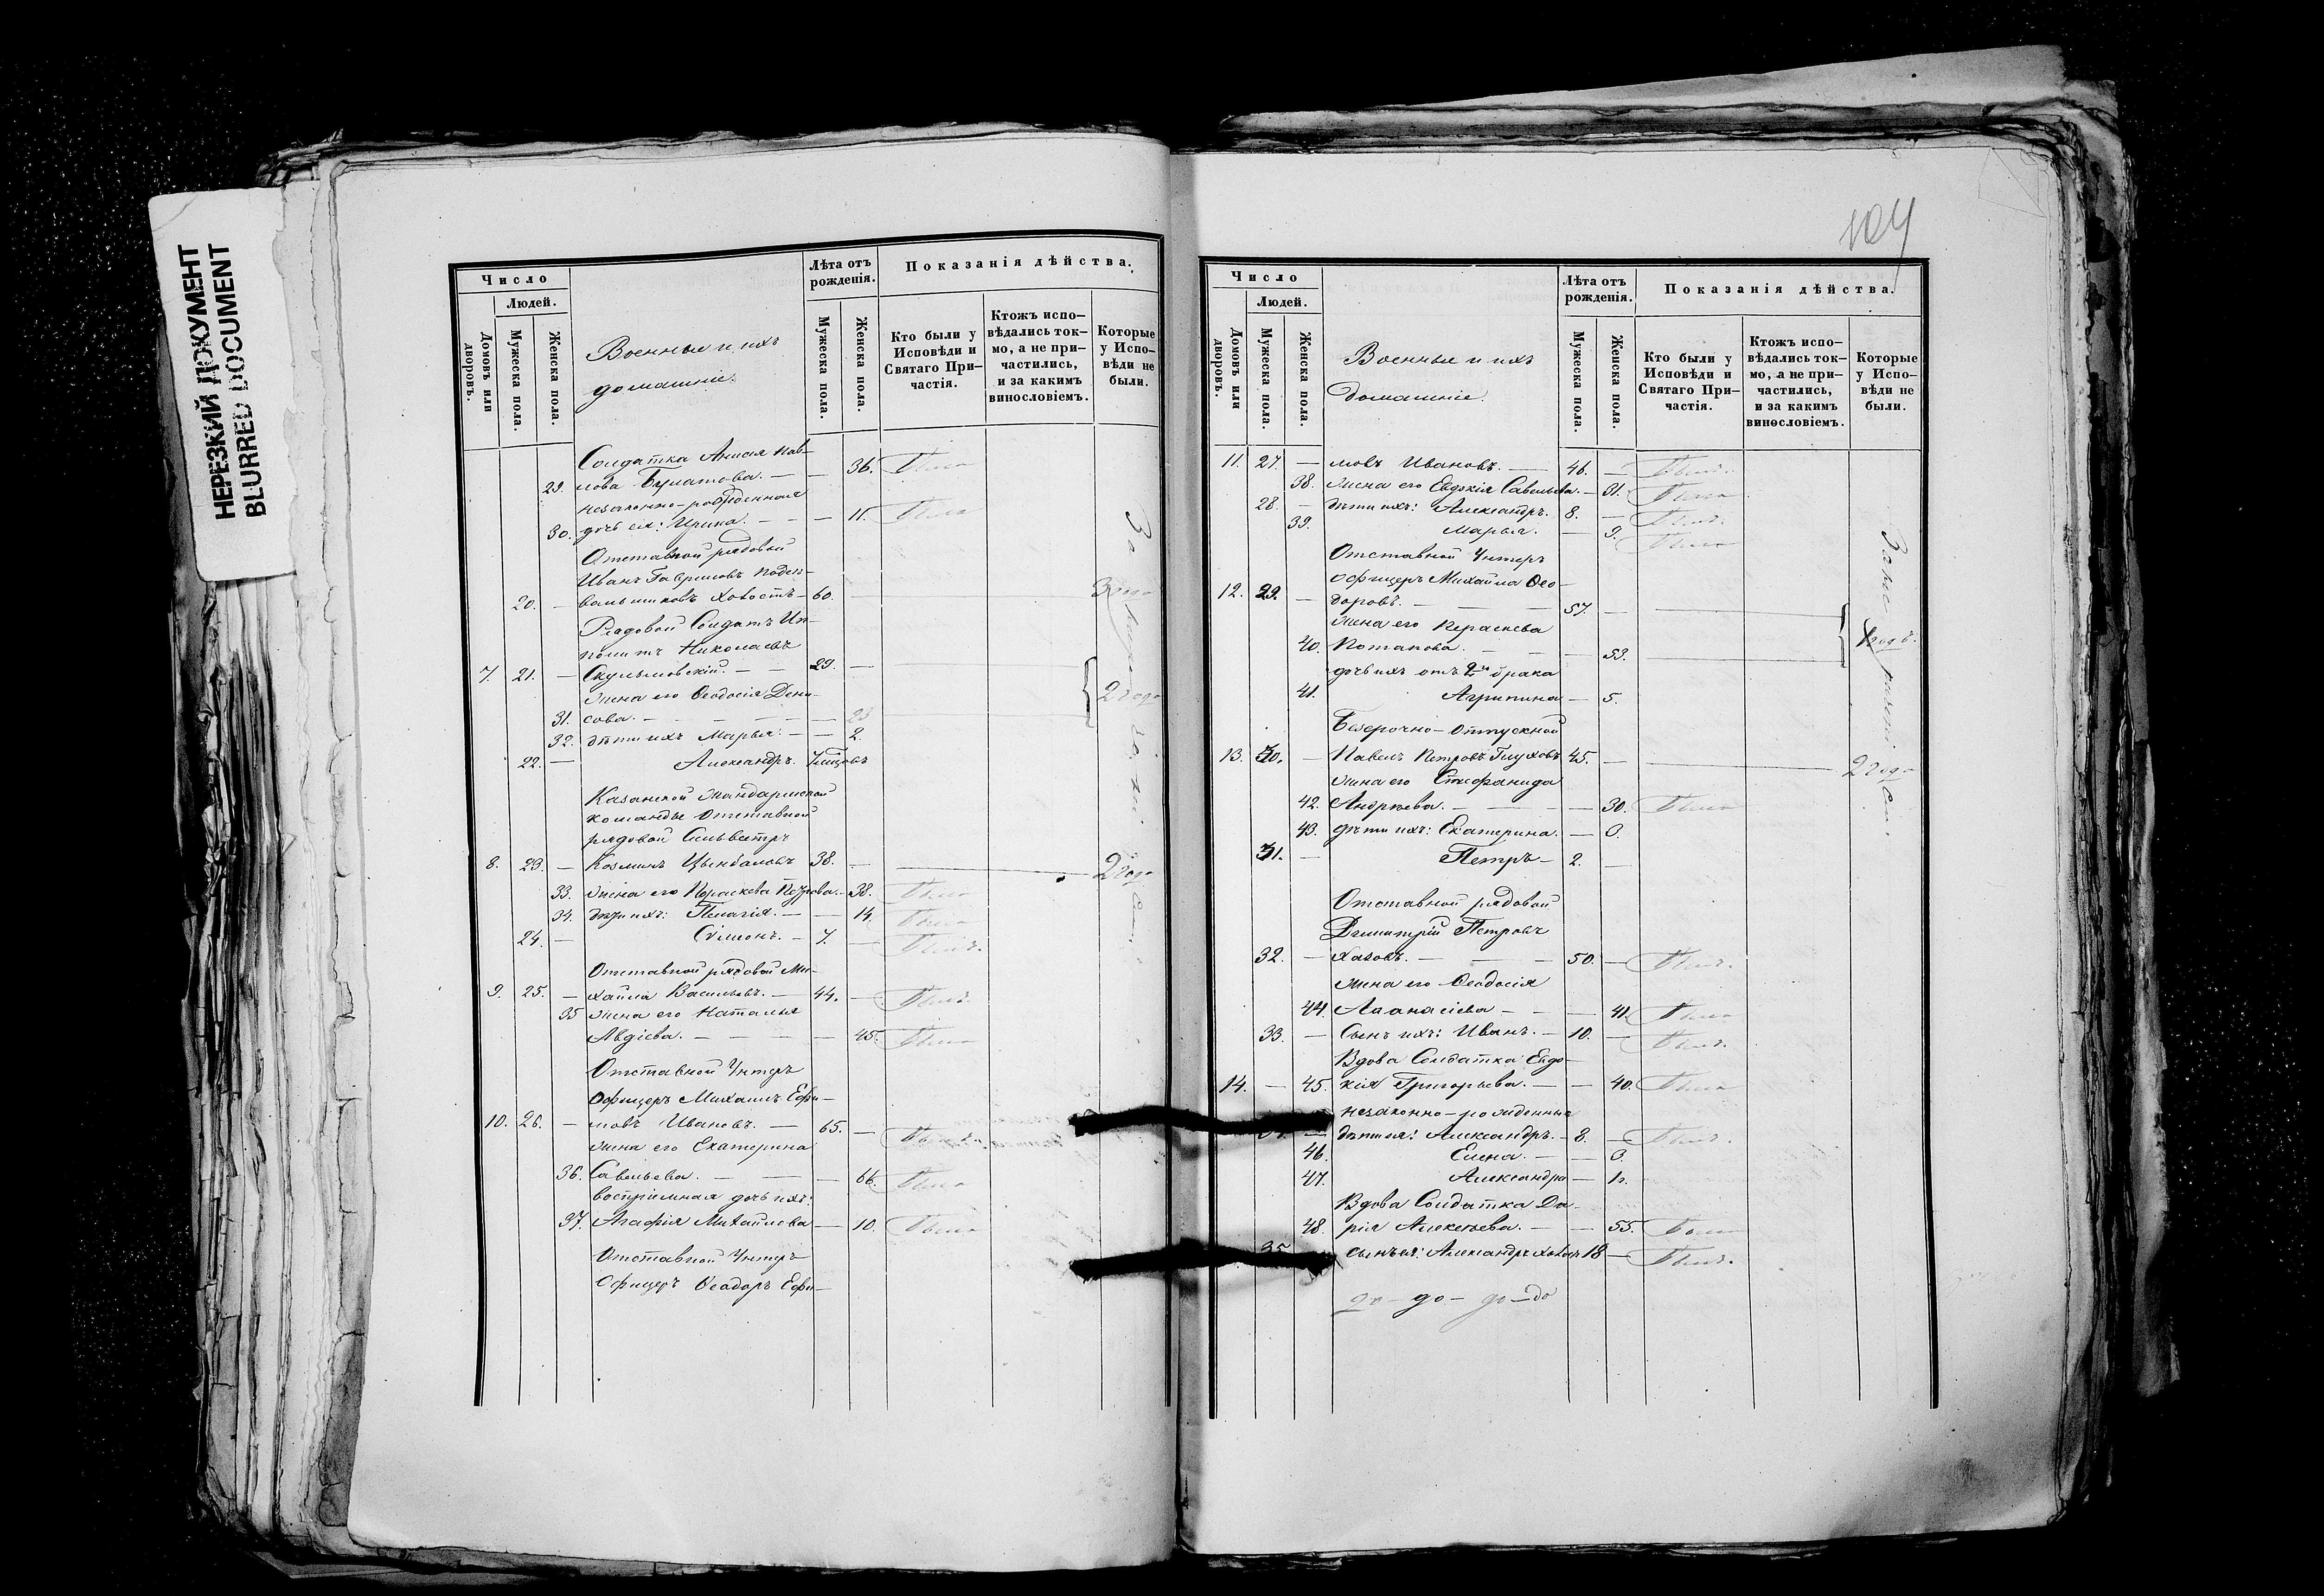 НЕРЕЗКИЙ ДОКУМЕНТ
BLURRED DOCUMENT
Число
Людей.
Домовъ или дворовъ.
Мужеска пола.
Женска пола.
Военные и ихъ
домашніе.
Лѣта отъ рожденія.
Мужеска пола.
Женска пола.
Показанія дѣйства.
Кто были у Исповѣди и Святаго При-частія.
Ктожъ испо-вѣдались ток-мо, а не при-частились, и за какимъ винословіемъ.
Которые у Испо-вѣди не были.
Солдатка Анисія Пав-
29. лова Булатова. — — 36. Была
незаконно-рожденная
30. дочь ея: Ирина. — — — 11. Была
Отставной рядовой
Иванъ Гавриловъ
20. — 60. —
Рядовой Солдатъ Ип-
политъ Николаевъ
7. 21. — 29. —
жена его Ѳеодосія Дени-
31. сова. — — — — 23
2 года
32. дѣти ихъ Марья. — — 2.
22. — Александръ.
Казанской Жандармской
команды Отставной
рядовой Сильвестръ
8. 23. — Козминъ Цынбаловъ 38. — 2 года
33. жена его Параскева Петрова. — 38. Была
34. дѣти ихъ: Пелагія. — — 14. Была
24. — Сѵмеонъ. — 7. — Былъ.
Отставной рядовой Ми-
9. 25. — хайла Васильевъ. — 44. — Былъ
35 жена его Наталья
Авдіева. — — — — 45. Была
Отставной Унтеръ
Офицеръ Михаилъ Ефи-
10. 26. — мовъ Ивановъ. — 65. — Былъ.
жена его Екатерина
36. Савельева. — — — 66. Была
воспріемная дочь ихъ:
37. Агафія Михайлова — 10. Была
Отставной Унтеръ
Офицеръ Ѳеодоръ Ефи-
104
Число
Людей.
Домовъ или дворовъ.
Мужеска пола.
Женска пола.
Военные и ихъ
домашніе.
Лѣта отъ рожденія.
Мужеска пола.
Женска пола.
Показанія дѣйства.
Кто были у Исповѣди и Святаго При-частія.
Ктожъ испо-вѣдались ток-мо, а не при-частились, и за какимъ винословіемъ.
Которые у Испо-вѣди не были.
11. 27. — мовъ Ивановъ. — 46. — Былъ.
38. жена его Евдокія Савельева. — 31. Была
28. — дѣти ихъ: Александръ. 8. — Былъ.
39. Марья. — 9. Была
Отставной Унтеръ
офицеръ Михайла Ѳео-
12. 29. — доровъ. — — — 57. —
жена его Параскева
40. Потапова. — — — 53.
дочь ихъ отъ 2го брака
41. Агрипина — 5.
Безсрочно-Отпускной
13. 30. — Павелъ Петровъ Глуховъ 45. — 2 года
жена его Стефанида
42. Андреева. — — — 30. Была
43. дѣти ихъ: Екатерина. —
31. — Петръ — 2. —
Отставной рядовой
Димитрій Петровъ
32. — Хазовъ. — — 50. — Былъ.
жена его Ѳеодосія
44. Аѳанасіева — — — 41. Была
33. — Сынъ ихъ: Иванъ. — 10. — Былъ.
Вдова Солдатка Евдо-
14. — 45. кія Григорьева. — — 40. Была
незаконно-рожденные
— дѣти ея: Александръ. — 8. — Былъ.
46. Елена. — —
47. Александра —
Вдова Солдатка Да-
48. рія Алексѣева. — — 55. Была
35 сынъ ея: Александръ 18 — Былъ.